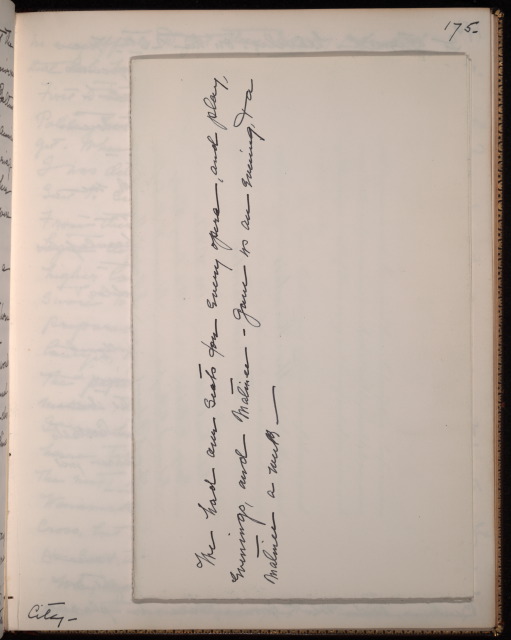 175.
We had our seats for every opera, and play,
Evenings, and Matinee - gave us an evening, & a
Matinee a week —
City -